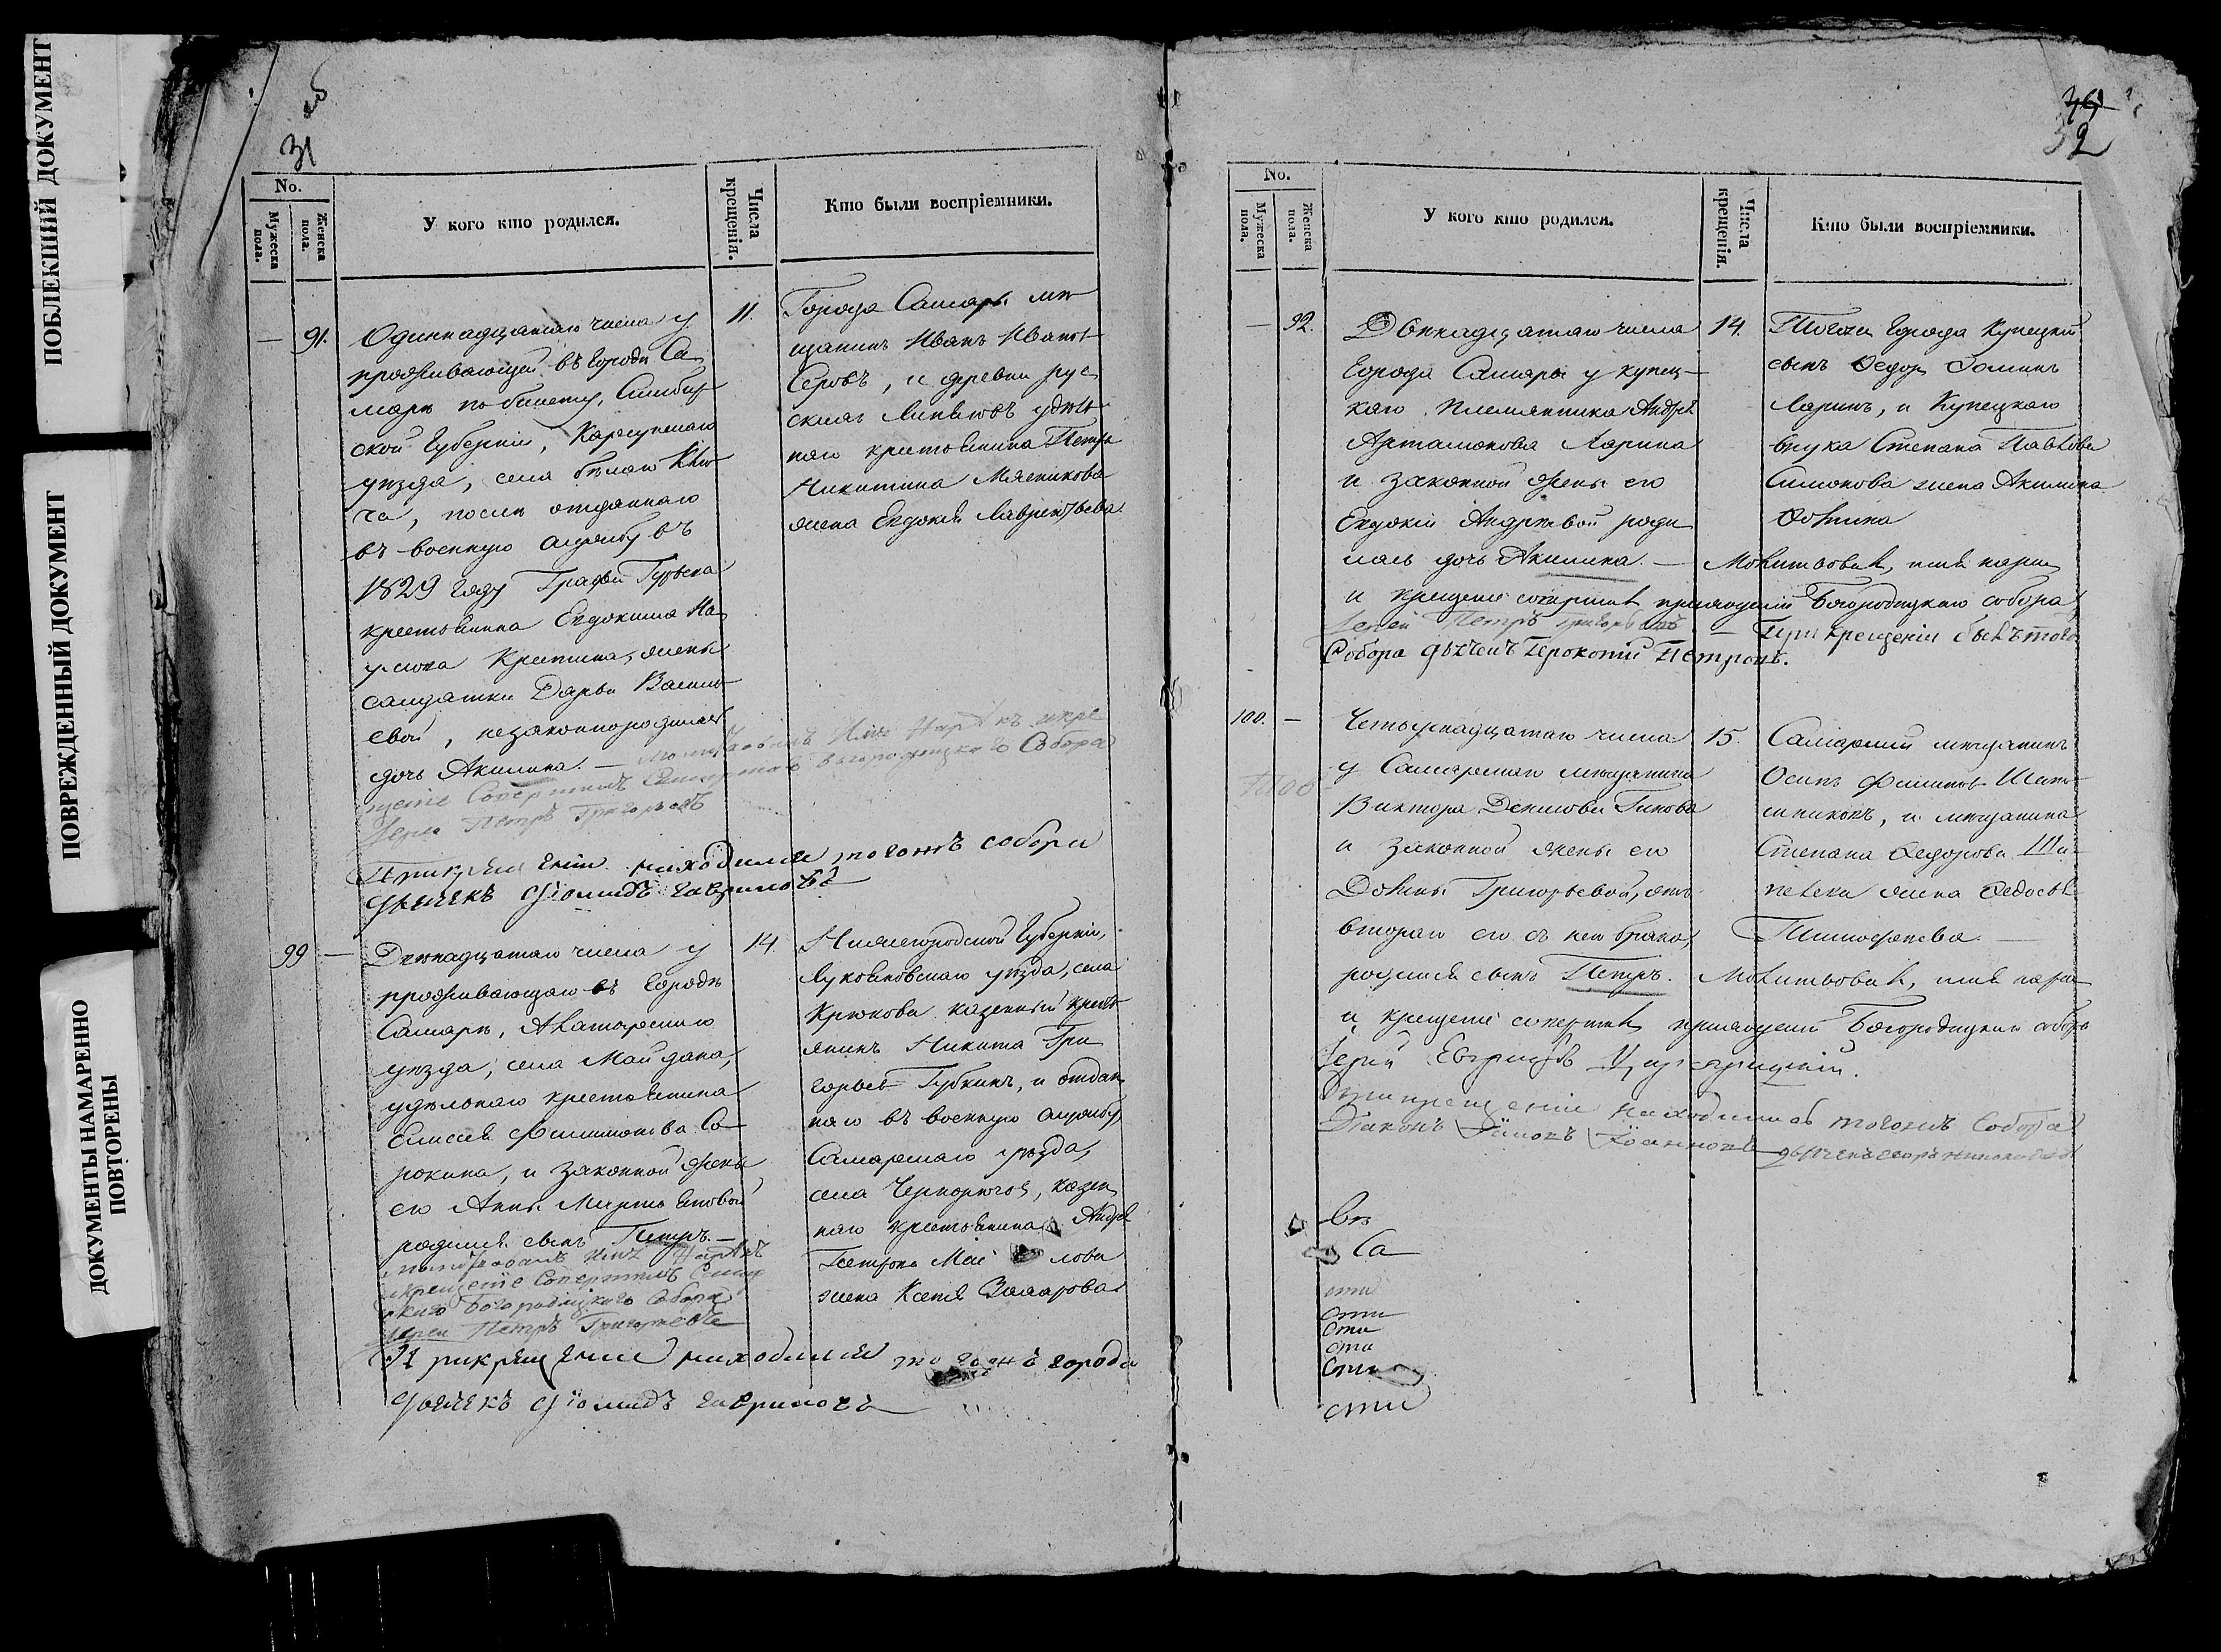 ПОБЛЕКШИЙ ДОКУМЕНТ
ПОВРЕЖДЕННЫЙ ДОКУМЕНТ
ДОКУМЕНТЫ НАМАРЕННО
ПОВТОРЕНЫ
об
31
No.
Мужеска пола.
Женска пола.
У кого кто родился.
Числа крещенія.
Кто были воспріемники.
— 91.
Одиннадцатаго числа у
проживающей въ городѣ Са
марѣ по билету, Симбир
ской Губерніи, Карсунскаго
уѣзда, села Бѣлаго Клю
ча, послѣ отданнаго
въ военную службу въ
1829 году Графа Гурьева
крестьянина Евдокима На
умова Крипина, жены
салдатки Дарьи Василь
евой, незаконнорожденная
дочь Акилина. — молитвовалъ имя нарѣкъ и кре
щеніе Совершилъ Самарскаго Богородицкаго Собора
Іерей Петръ Григорьевъ
При крещеніи находился тогожъ собора
дьячекъ Діомидъ Гавриловъ
11.
Города Самары мѣ
щанинъ Иванъ Ивановъ
Серовъ, и деревни рус
скихъ Липяговъ удѣль
наго крестьянина Петра
Никитина Мясникова
жена Евдокія Лаврентьева
99 —
Двенадцатаго числа у
проживающаго въ городѣ
Самарѣ, Алатарскаго
уѣзда, села Майдана,
удѣльнаго крестьянина
Елисея Филимонова Со
рокина, и законной жены
его Анны Мартыновой
родился сынъ Петръ. —
молитвовалъ имя Нарѣкъ
и крещеніе Совершилъ Самар
скаго Богородицкаго Собора
Іерей Петръ Григорьевъ
При крещеніи находился тогожъ города
дьячекъ Діомидъ Гавриловъ
14.
Нижегородской Губерніи,
Лукояновскаго уѣзда, села
Крюкова казенный кресть
янинъ Никита Гри
горьевъ Губкинъ, и отдан
наго въ военную службу,
Самарскаго уѣзда,
села Чернорѣчья, казен
наго крестьянина Андрея
Петрова лова
жена Ксенія Захарова
32
No.
Мужеска пола.
Женска пола.
У кого кто родился.
Числа крещенія.
Кто были воспріемники.
— 92.
Двенадцатаго числа
города Самары у купец-
каго племянника Андрея
Артамонова Ларина
и законной жены его
Евдокіи Андреевой роди
лась дочь Акилина. — Молитвовалъ, имя нарекъ
и крещеніе совершилъ приходскій Богородицкаго собора
Іерей Петръ Григорьевъ — При крещеніи былъ того
Собора дьячекъ Прокопій Петровъ.
14.
Тогожъ города Купецкій
сынъ Федоръ Фоминъ
Ларинъ, и Купецкаго
внука Степана Павлова
Симонова жена Акилина
Фомина
100. —
Четырнадцатаго числа
у Самарскаго мѣщанина
Виктора Денисова Гикова
и законной жены его
Домны Григорьевой, отъ
втораго его съ нею брака,
родился сынъ Петръ. Молитвовалъ, имя нарѣкъ
и крещеніе совершилъ приходскій Богородицкій собора
Іерей
При крещеніи находились тогожъ Собора
Діаконъ Іоанновъ
15.
Самарскій мѣщанинъ
Осипъ Филиповъ
и мѣщанина
Степана Федорова Ша-
пелева жена Федосья
Тимофеева. —
Въ
Са
сти
сти
сти
сти
сти
сти